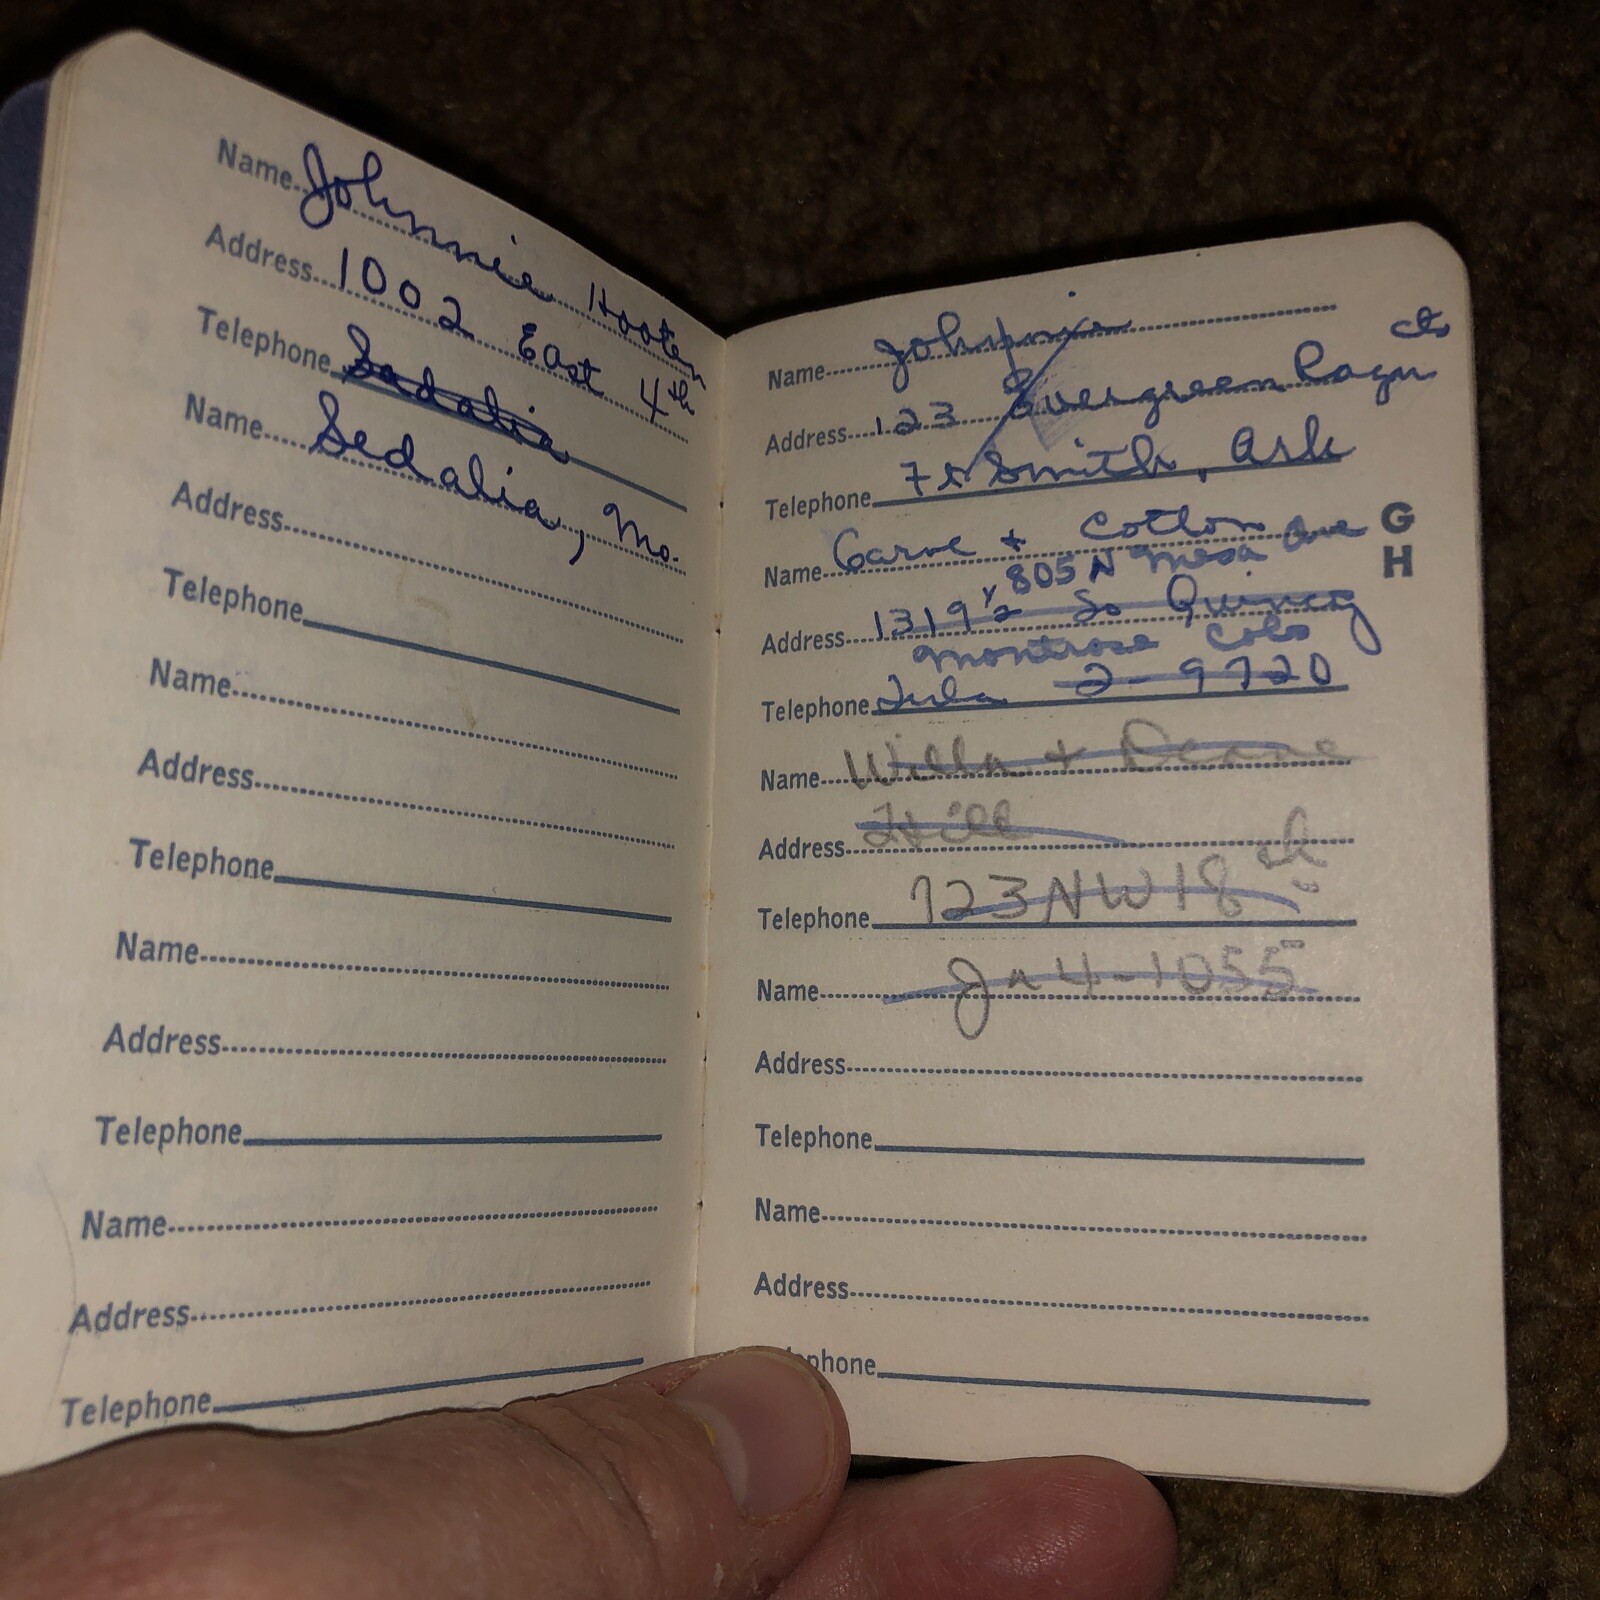 Name Johnnie Hooten
Address 1002 East 4th
Telephone Sadalia
Name Sedalia, Mo.
Address
Telephone
Name
Address
Telephone
Name
Address
Telephone
Name
Address
Telephone
Name Johnnie
cts
Address 123 Evergreen
Telephone Ft Smith, Ark
Name Garve + Cotton
G
H
805 N Mesa Ave
Address 1319 1/2 So Quincy
Montrose Colo
Telephone 2-9720
Name Willa + Deane
Address Hill
Telephone 723 NW 18th
Name Ja 4-1055
Address
Telephone
Name
Address
phone